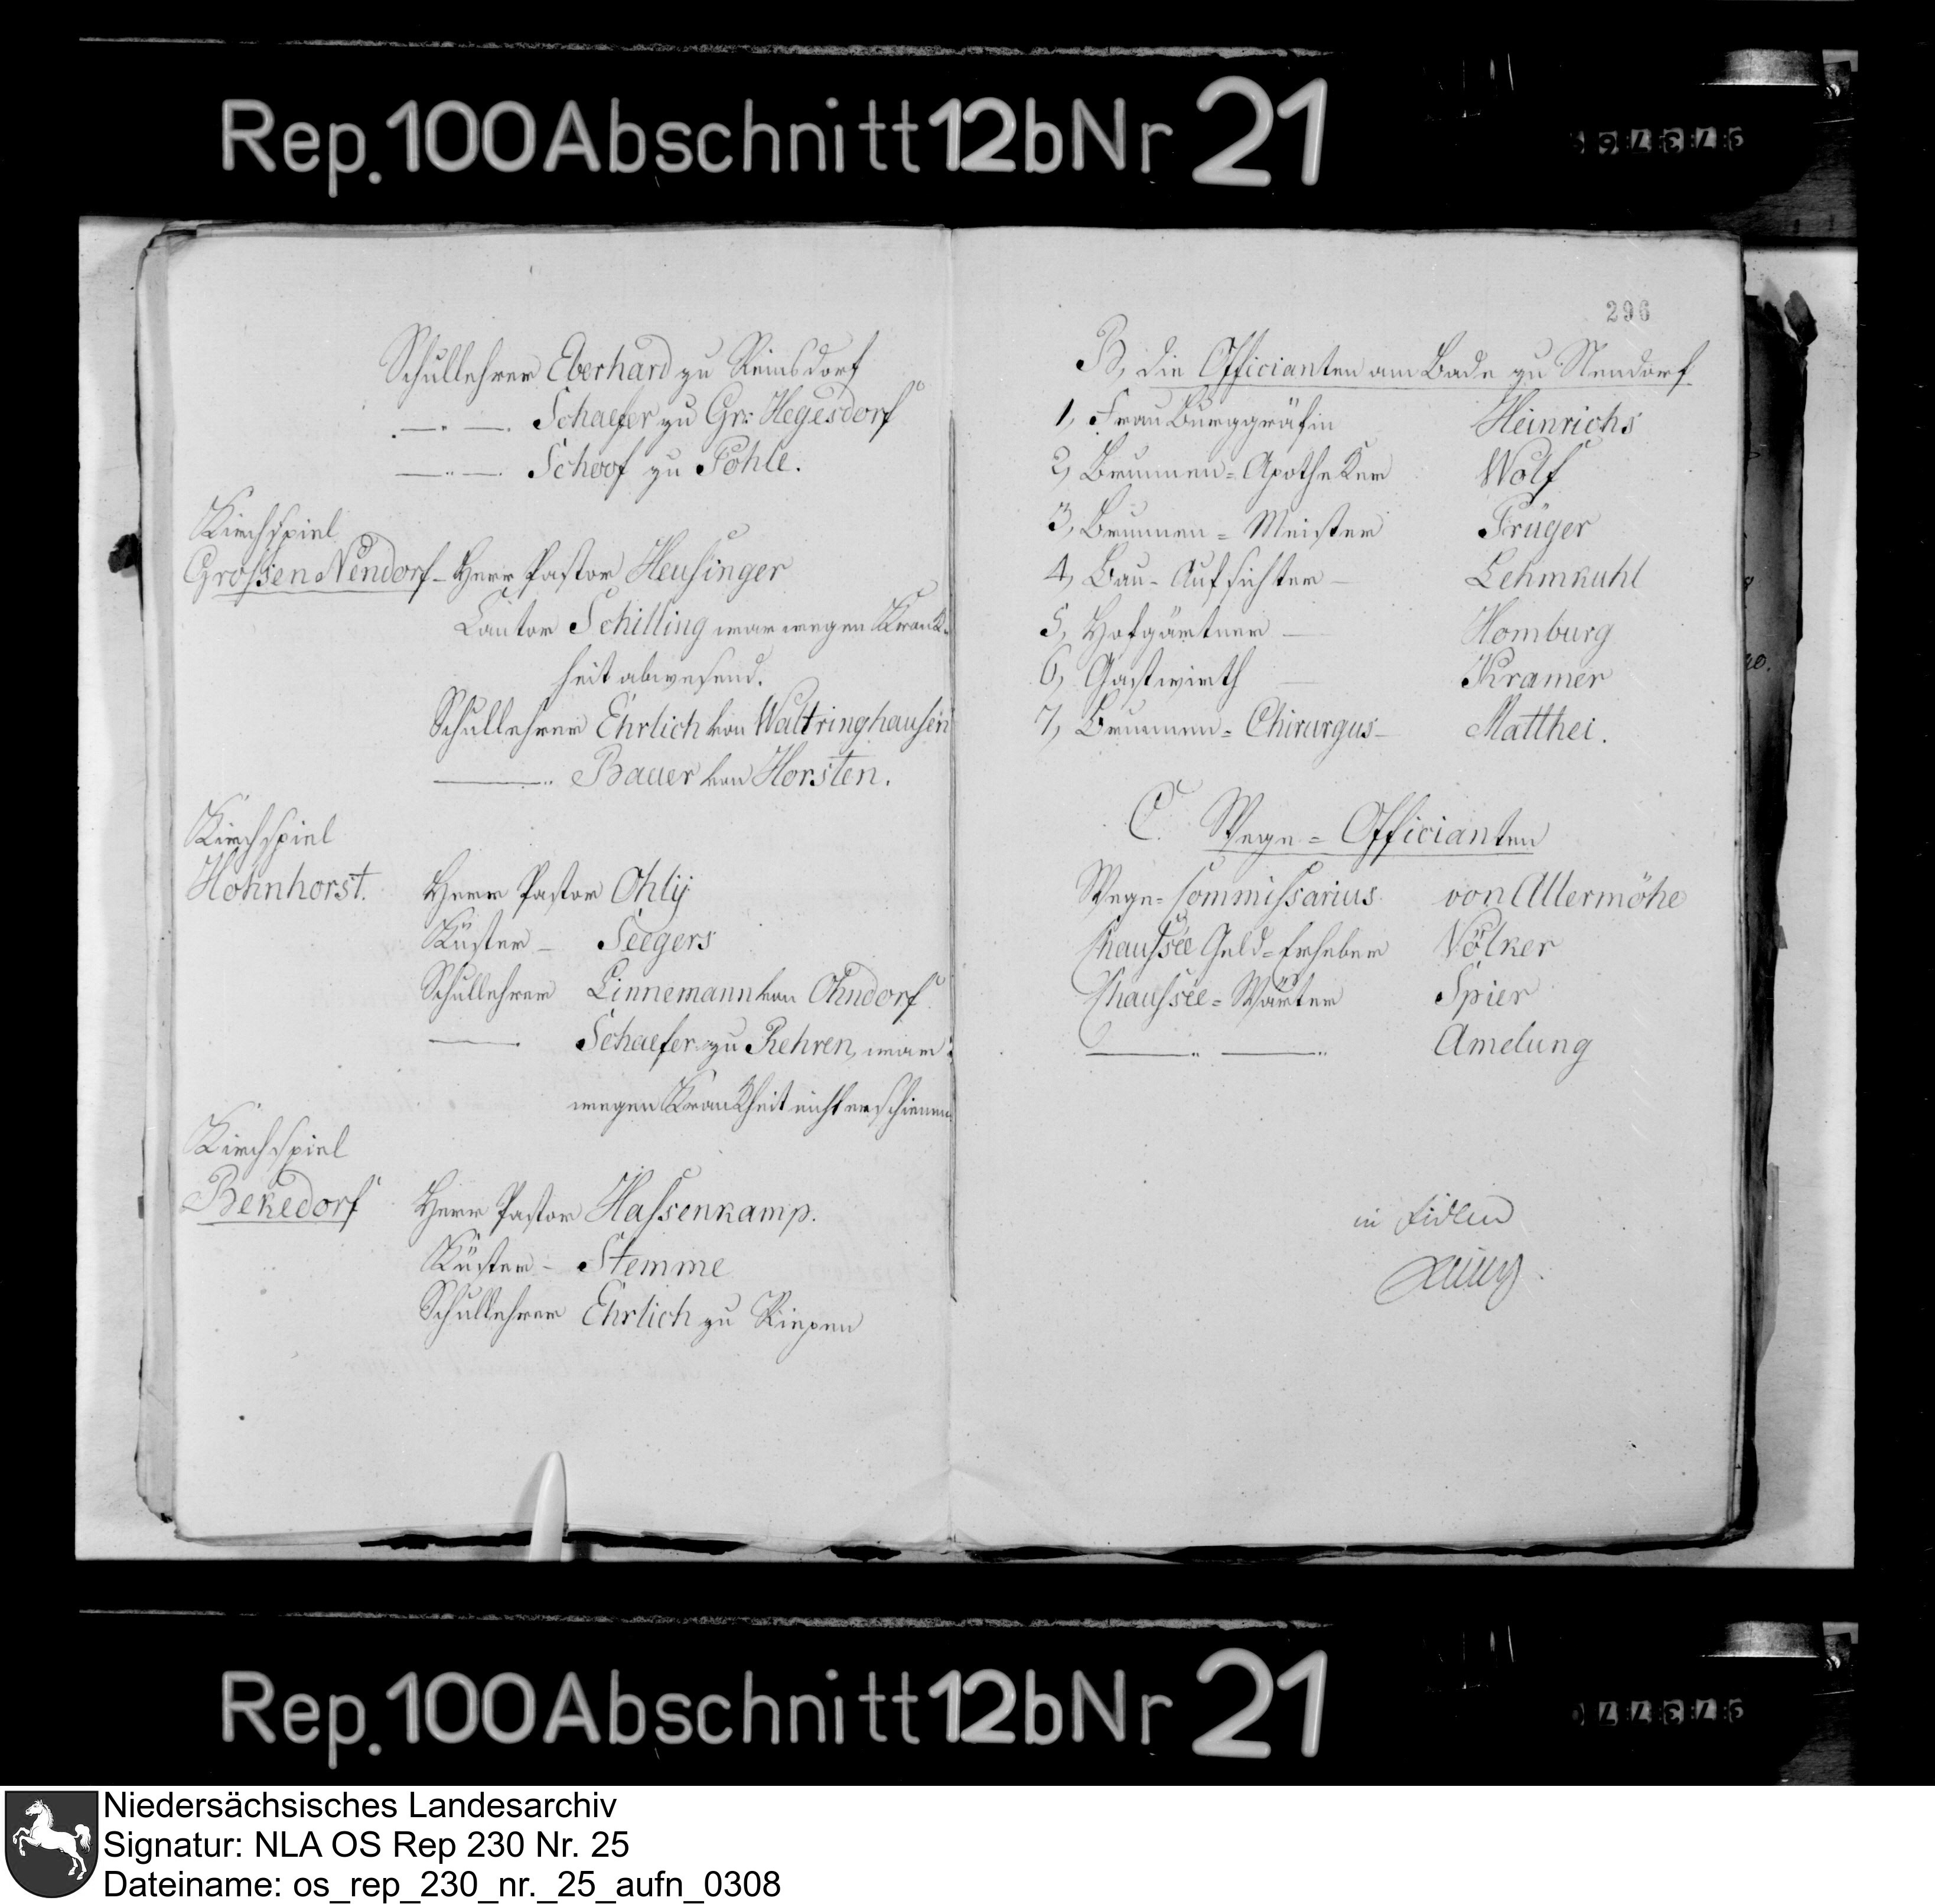 Rep.100Abschnitt12bNr 21
Schullehrer Eberhard zu Reinsdorf
—.— Schaefer zu Gr: Hegesdorf
—..— Schoof zu Pohle.
Kirchspiel
Grossen Nendorf – Herr Pastor Heusinger
Cantor Schilling war wegen Krank-
heit abwesend.
Schullehrer Ehrlich von Waltringhausen
——.. Bauer von Horsten.
Kirchspiel
Hohnhorst. Herr Pastor Ohly
Küster – Seegers
Schullehrer Linnemann von Ohndorf
—— Schaefer zu Rehren, war
wegen Krankheit nicht erschienen
Kirchspiel
Bekedorf Herr Pastor Hassenkamp.
Küster – Stemme
Schullehrer Ehrlich zu Riepen
296
B, die Officianten am Bade zu Nendorf
1, Frau Burggräfin Heinrichs
2, Brunnen=Apotheker Wolf
3, Brunnen=Meister Früger
4, Bau-Aufsichter – Lehmkuhl
5, Hofgärtner — Homburg
6, Gastwirth — Kramer
7, Brunnen=Chirurgus – Matthei.
C. Wege=Officianten
Wege=Commissarius von Allermöhe
Chaussée Geld=Erheber Völker
Chaussée=Wärter Spier
——.. ——.. Amelung
in fidem
Rep.100Abschnitt12bNr 21
Niedersächsisches Landesarchiv
Signatur: NLA OS Rep 230 Nr. 25
Dateiname: os_rep_230_nr._25_aufn_0308